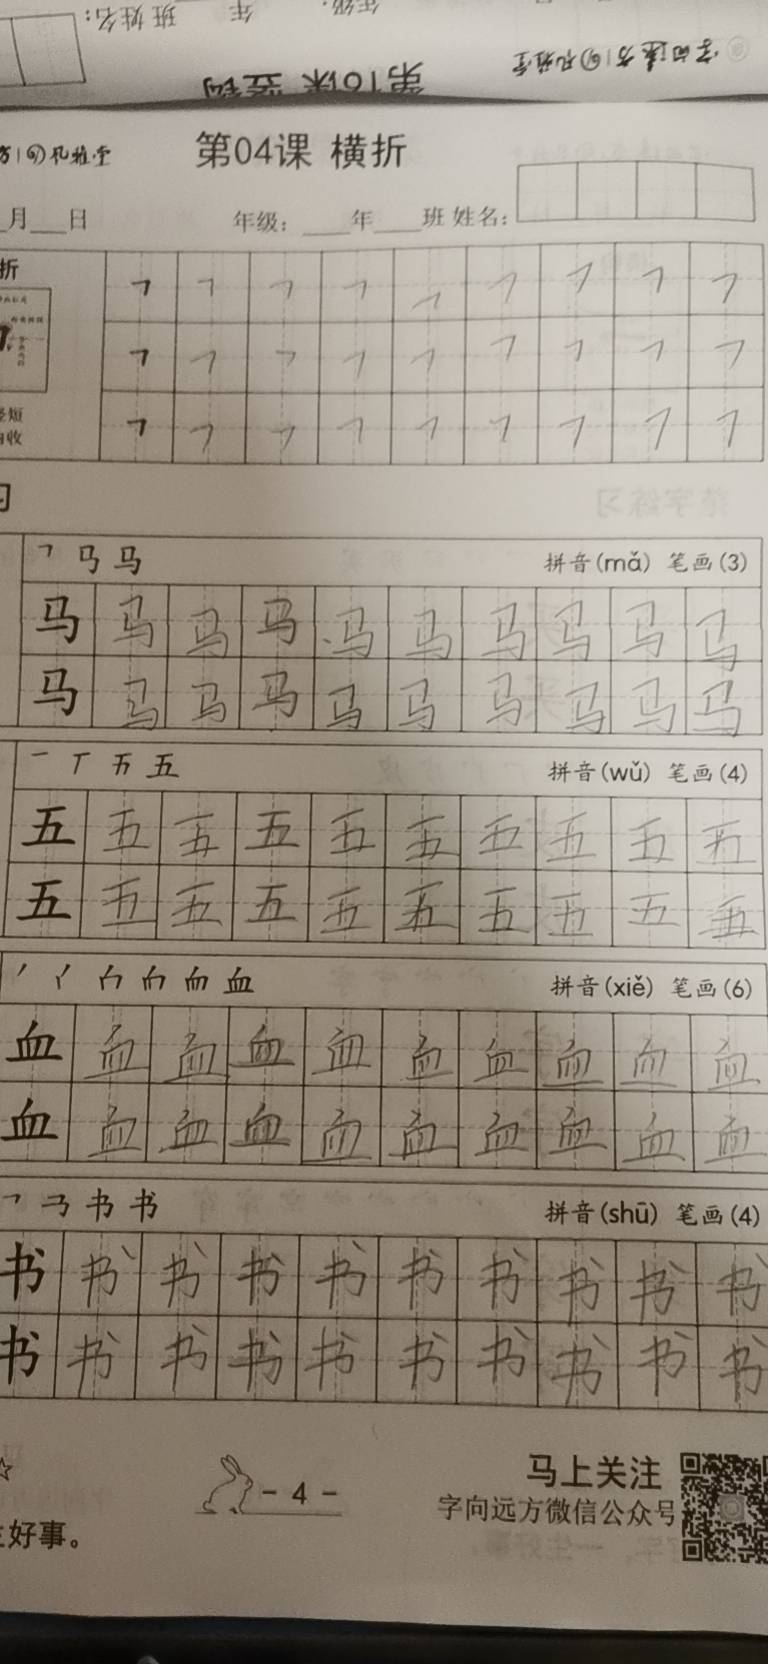 班 姓名：
年
年级：
第10课 竖钩
字向远方|孔雅堂
方|孔雅堂
第04课 横折
月 日 年级： 年 班 姓名：
折
㇕ ㇕ ㇕ ㇕ ㇕ ㇕ ㇕ ㇕ ㇕
㇕ ㇕ ㇕ ㇕ ㇕ ㇕ ㇕ ㇕ ㇕
㇕ ㇕ ㇕ ㇕ ㇕ ㇕ ㇕ ㇕ ㇕
短
收
习
㇕ 马 拼音(mǎ) 笔画(3)
马 马 马 马 马 马 马 马 马 马
马 马 马 马 马 马 马 马 马 马
一 丅 五 拼音(wǔ) 笔画(4)
五 五 五 五 五 五 五 五 五 五
五 五 五 五 五 五 五 五 五 五
丿 血 拼音(xiě) 笔画(6)
血 血 血 血 血 血 血 血 血 血
血 血 血 血 血 血 血 血 血 血
㇕ 书 书 拼音(shū) 笔画(4)
书 书 书 书 书 书 书 书 书 书
书 书 书 书 书 书 书 书 书 书
☆
- 4 -
马上关注
字向远方微信公众号
好事。